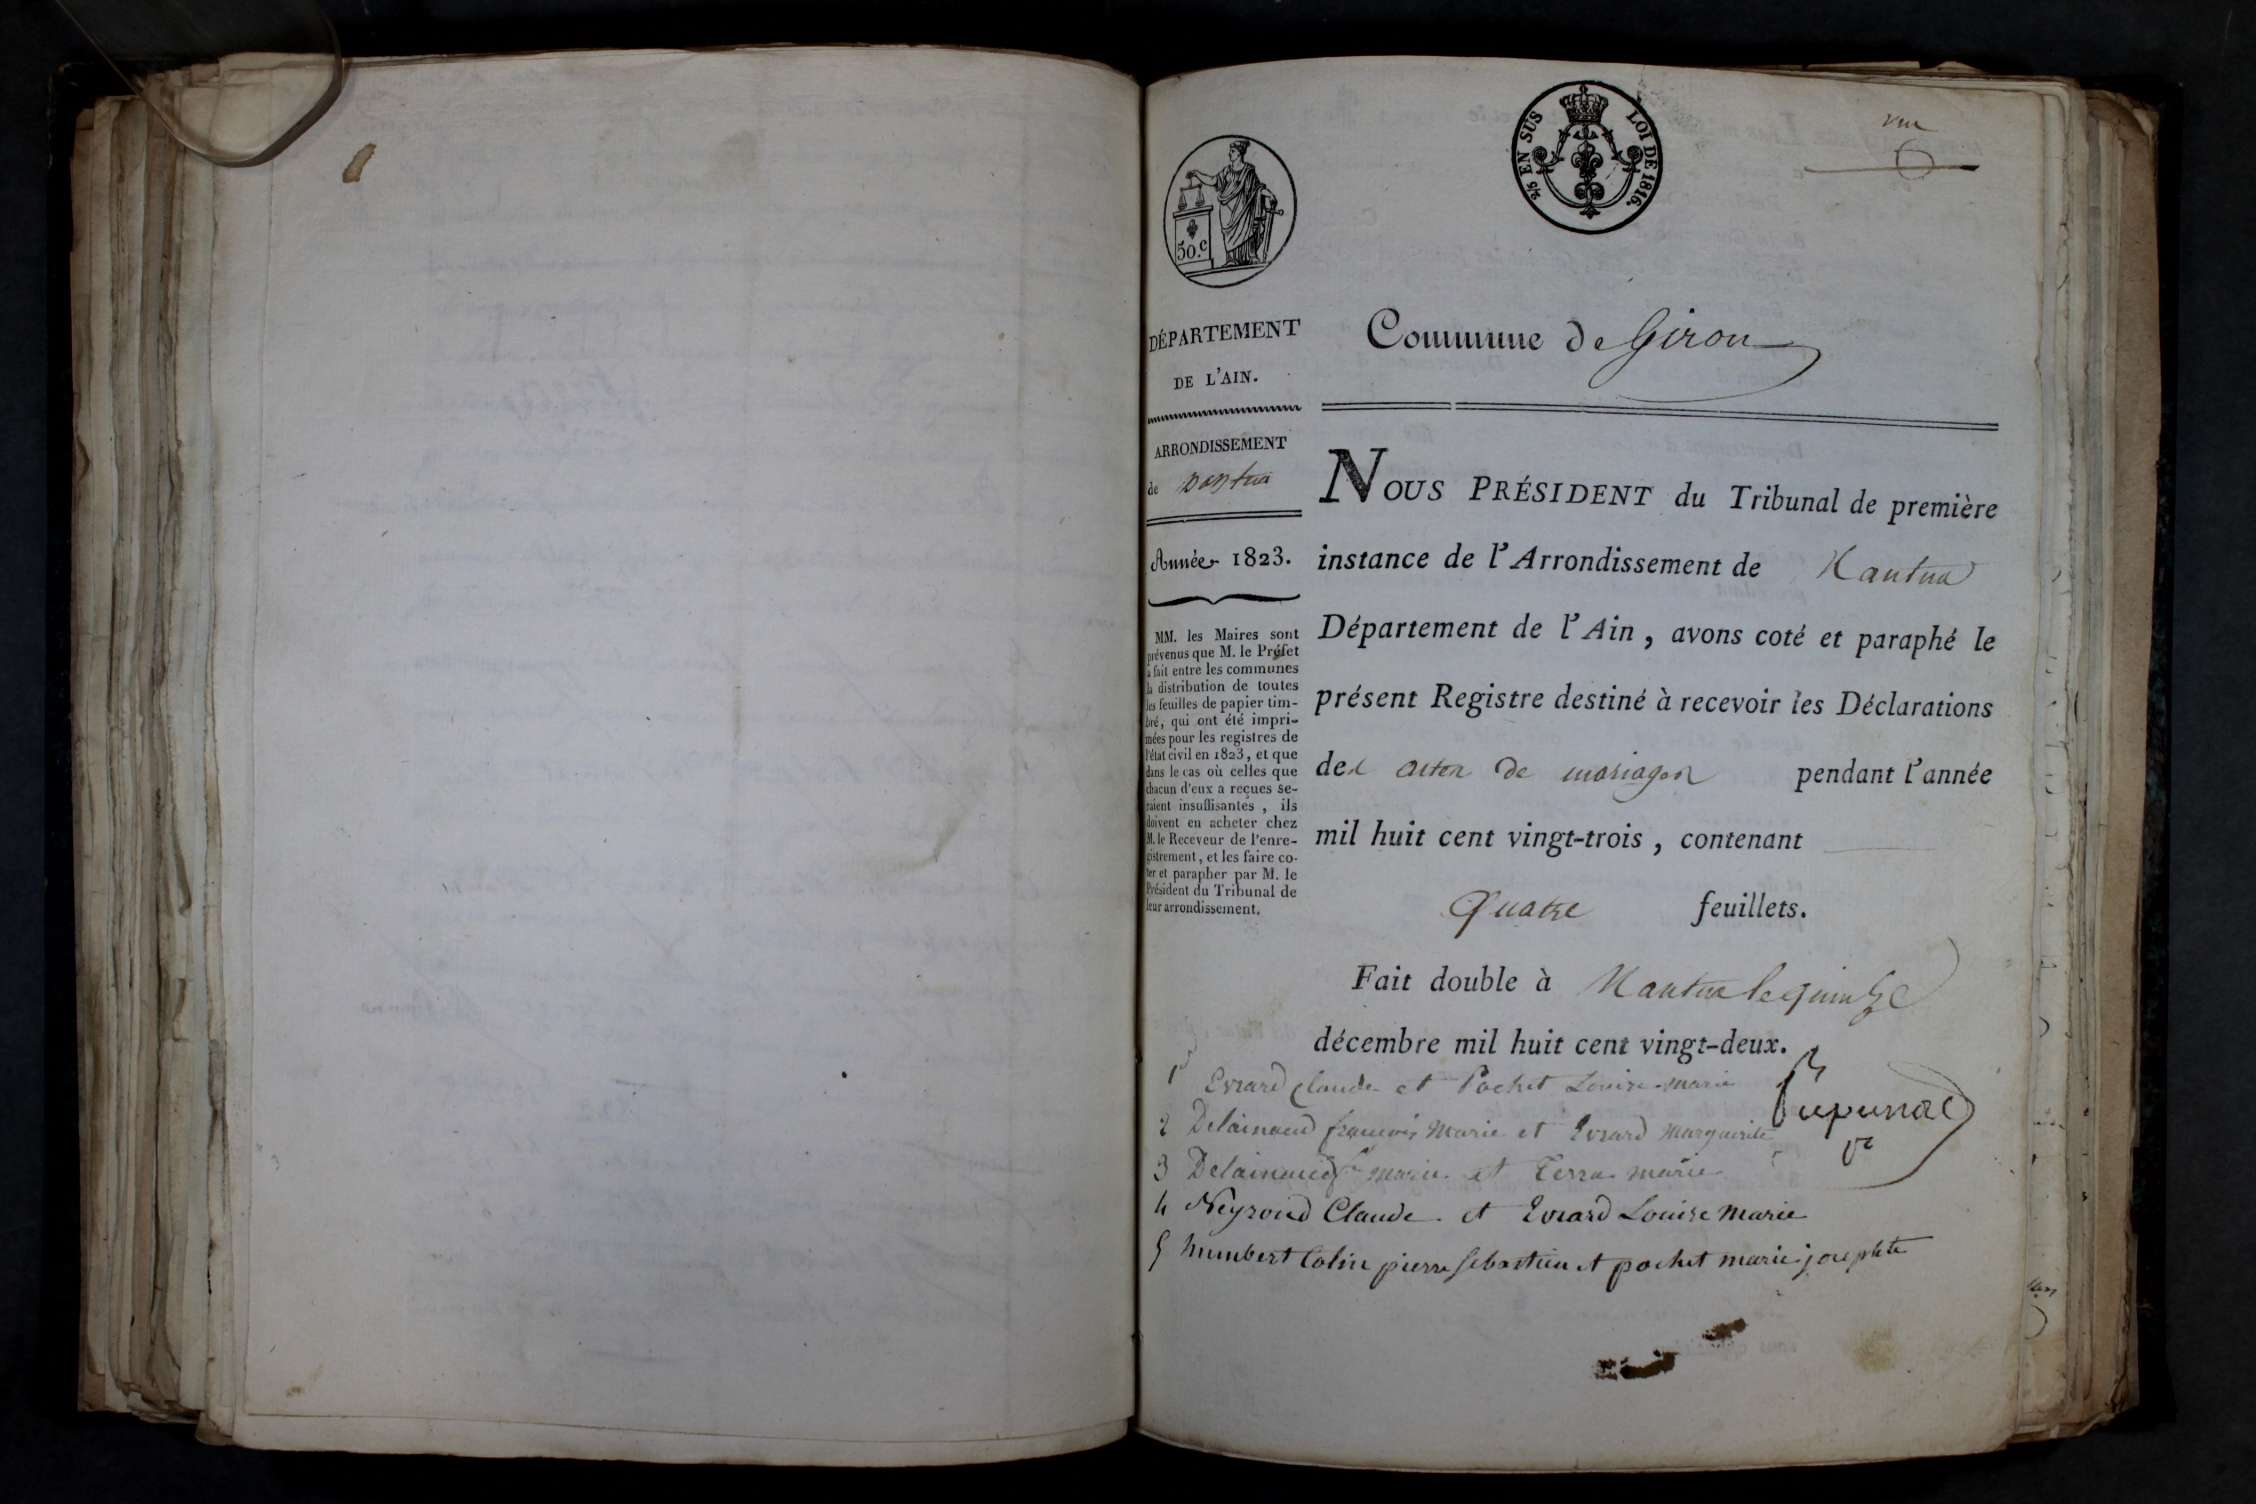 vu
2/5 EN SUS LOI DE 1816.
50.c
DÉPARTEMENT
DE L'AIN.
ARRONDISSEMENT
de Nantua
Année 1823.
MM. les Maires sont
prévenus que M. le Préfet
a fait entre les communes
la distribution de toutes
les feuilles de papier tim-
bré, qui ont été impri-
mées pour les registres de
l'état civil en 1823, et que
dans le cas où celles que
chacun d'eux a reçues se-
raient insuffisantes, ils
doivent en acheter chez
M. le Receveur de l'enre-
gistrement, et les faire co-
ter et parapher par M. le
Président du Tribunal de
leur arrondissement.
Commune de Giron
NOUS PRÉSIDENT du Tribunal de première
instance de l'Arrondissement de Nantua
Département de l'Ain, avons coté et paraphé le
présent Registre destiné à recevoir les Déclarations
des actes de mariages pendant l'année
mil huit cent vingt-trois, contenant
Quatre feuillets.
Fait double à Nantua le quinze
décembre mil huit cent vingt-deux.
1 Evrard Claude et Pochet Louise marie
2 Delainaud francois Marie et Evrard Marguerite
3 Delainaud marie et Terra marie
4 Neyroud Claude et Evrard Louise Marie
5 humbert Colin pierre Sebastien et pochet marie josephte